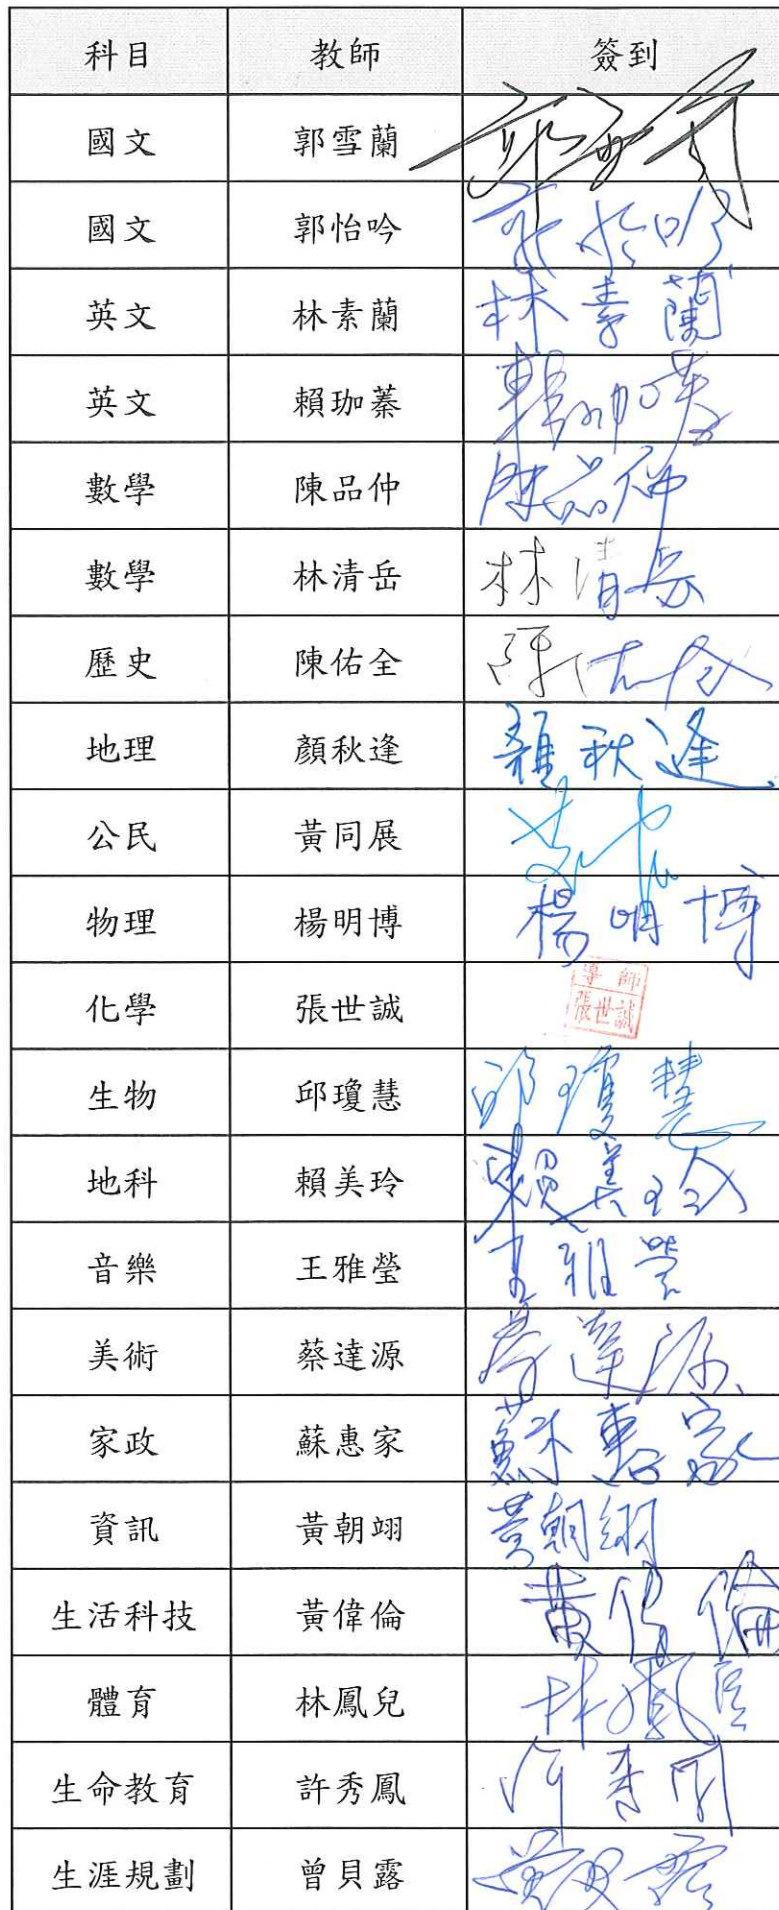 科目 教師 簽到
國文 郭雪蘭
國文 郭怡吟 郭怡吟
英文 林素蘭 林素蘭
英文 賴珈蓁 賴珈蓁
數學 陳品仲 陳品仲
數學 林清岳 林清岳
歷史 陳佑全 陳佑全
地理 顏秋逢 顏秋逢
公民 黃同展
物理 楊明博 楊明博
化學 張世誠 導師 張世誠
生物 邱瓊慧 邱瓊慧
地科 賴美玲 賴美玲
音樂 王雅瑩 王雅瑩
美術 蔡達源 蔡達源
家政 蘇惠家 蘇惠家
資訊 黃朝翊 黃朝翊
生活科技 黃偉倫 黃偉倫
體育 林鳳兒 林鳳兒
生命教育 許秀鳳 許秀鳳
生涯規劃 曾貝露